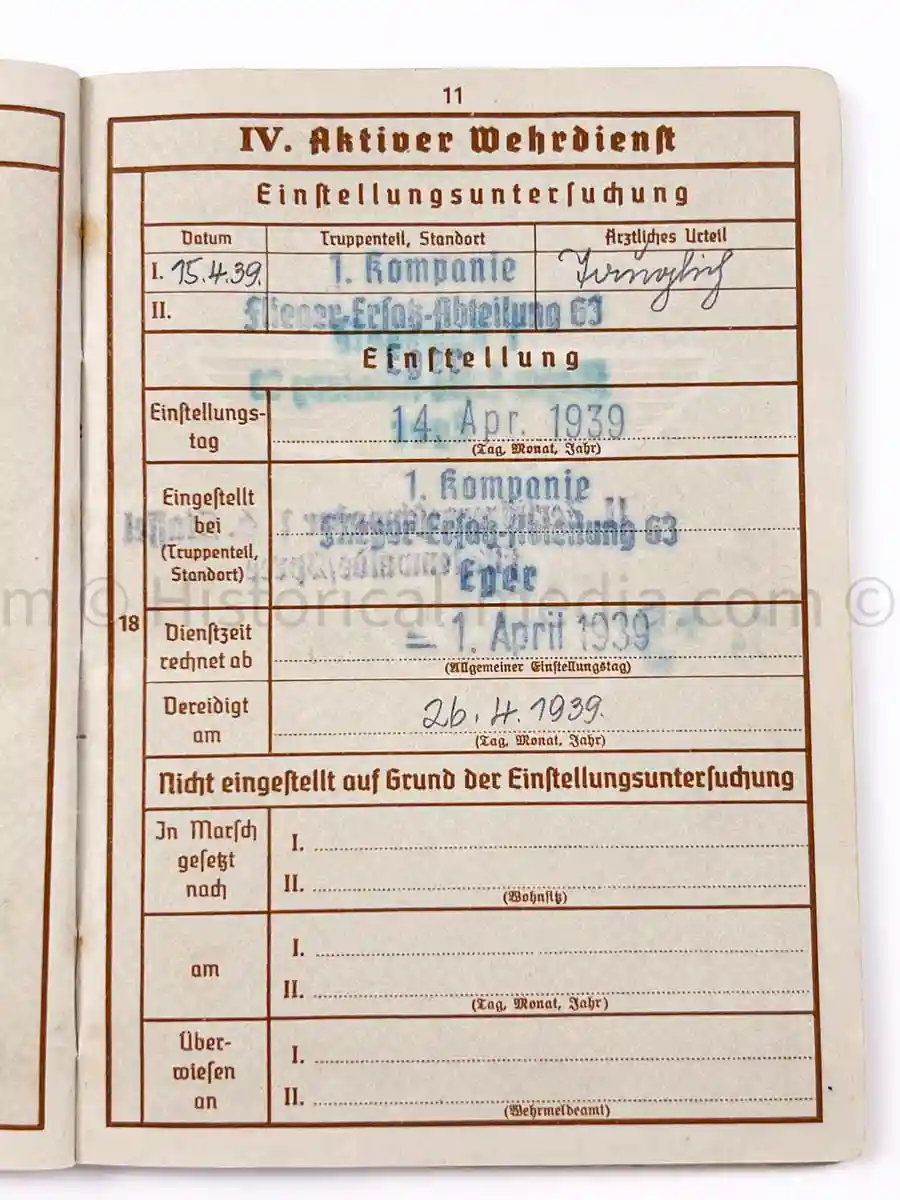 11
IV. Aktiver Wehrdienst
Einstellungsuntersuchung
Datum Truppenteil, Standort Ärztliches Urteil
I. 15.4.39. 1. Kompanie
II. Flieger-Ersatz-Abteilung 63
Eger
Einstellung
Einstellungs-
tag
14. Apr. 1939
(Tag, Monat, Jahr)
Eingestellt
bei
(Truppenteil,
Standort)
1. Kompanie
Flieger-Ersatz-Abteilung 63
Eger
m © Historical-media.com ©
18
Dienstzeit
rechnet ab
= 1. April 1939
(Allgemeiner Einstellungstag)
Vereidigt
am
26.4.1939.
(Tag, Monat, Jahr)
Nicht eingestellt auf Grund der Einstellungsuntersuchung
In Marsch
gesetzt
nach
I.
II.
(Wohnsitz)
am
I.
II.
(Tag, Monat, Jahr)
Über-
wiesen
an
I.
II.
(Wehrmeldeamt)